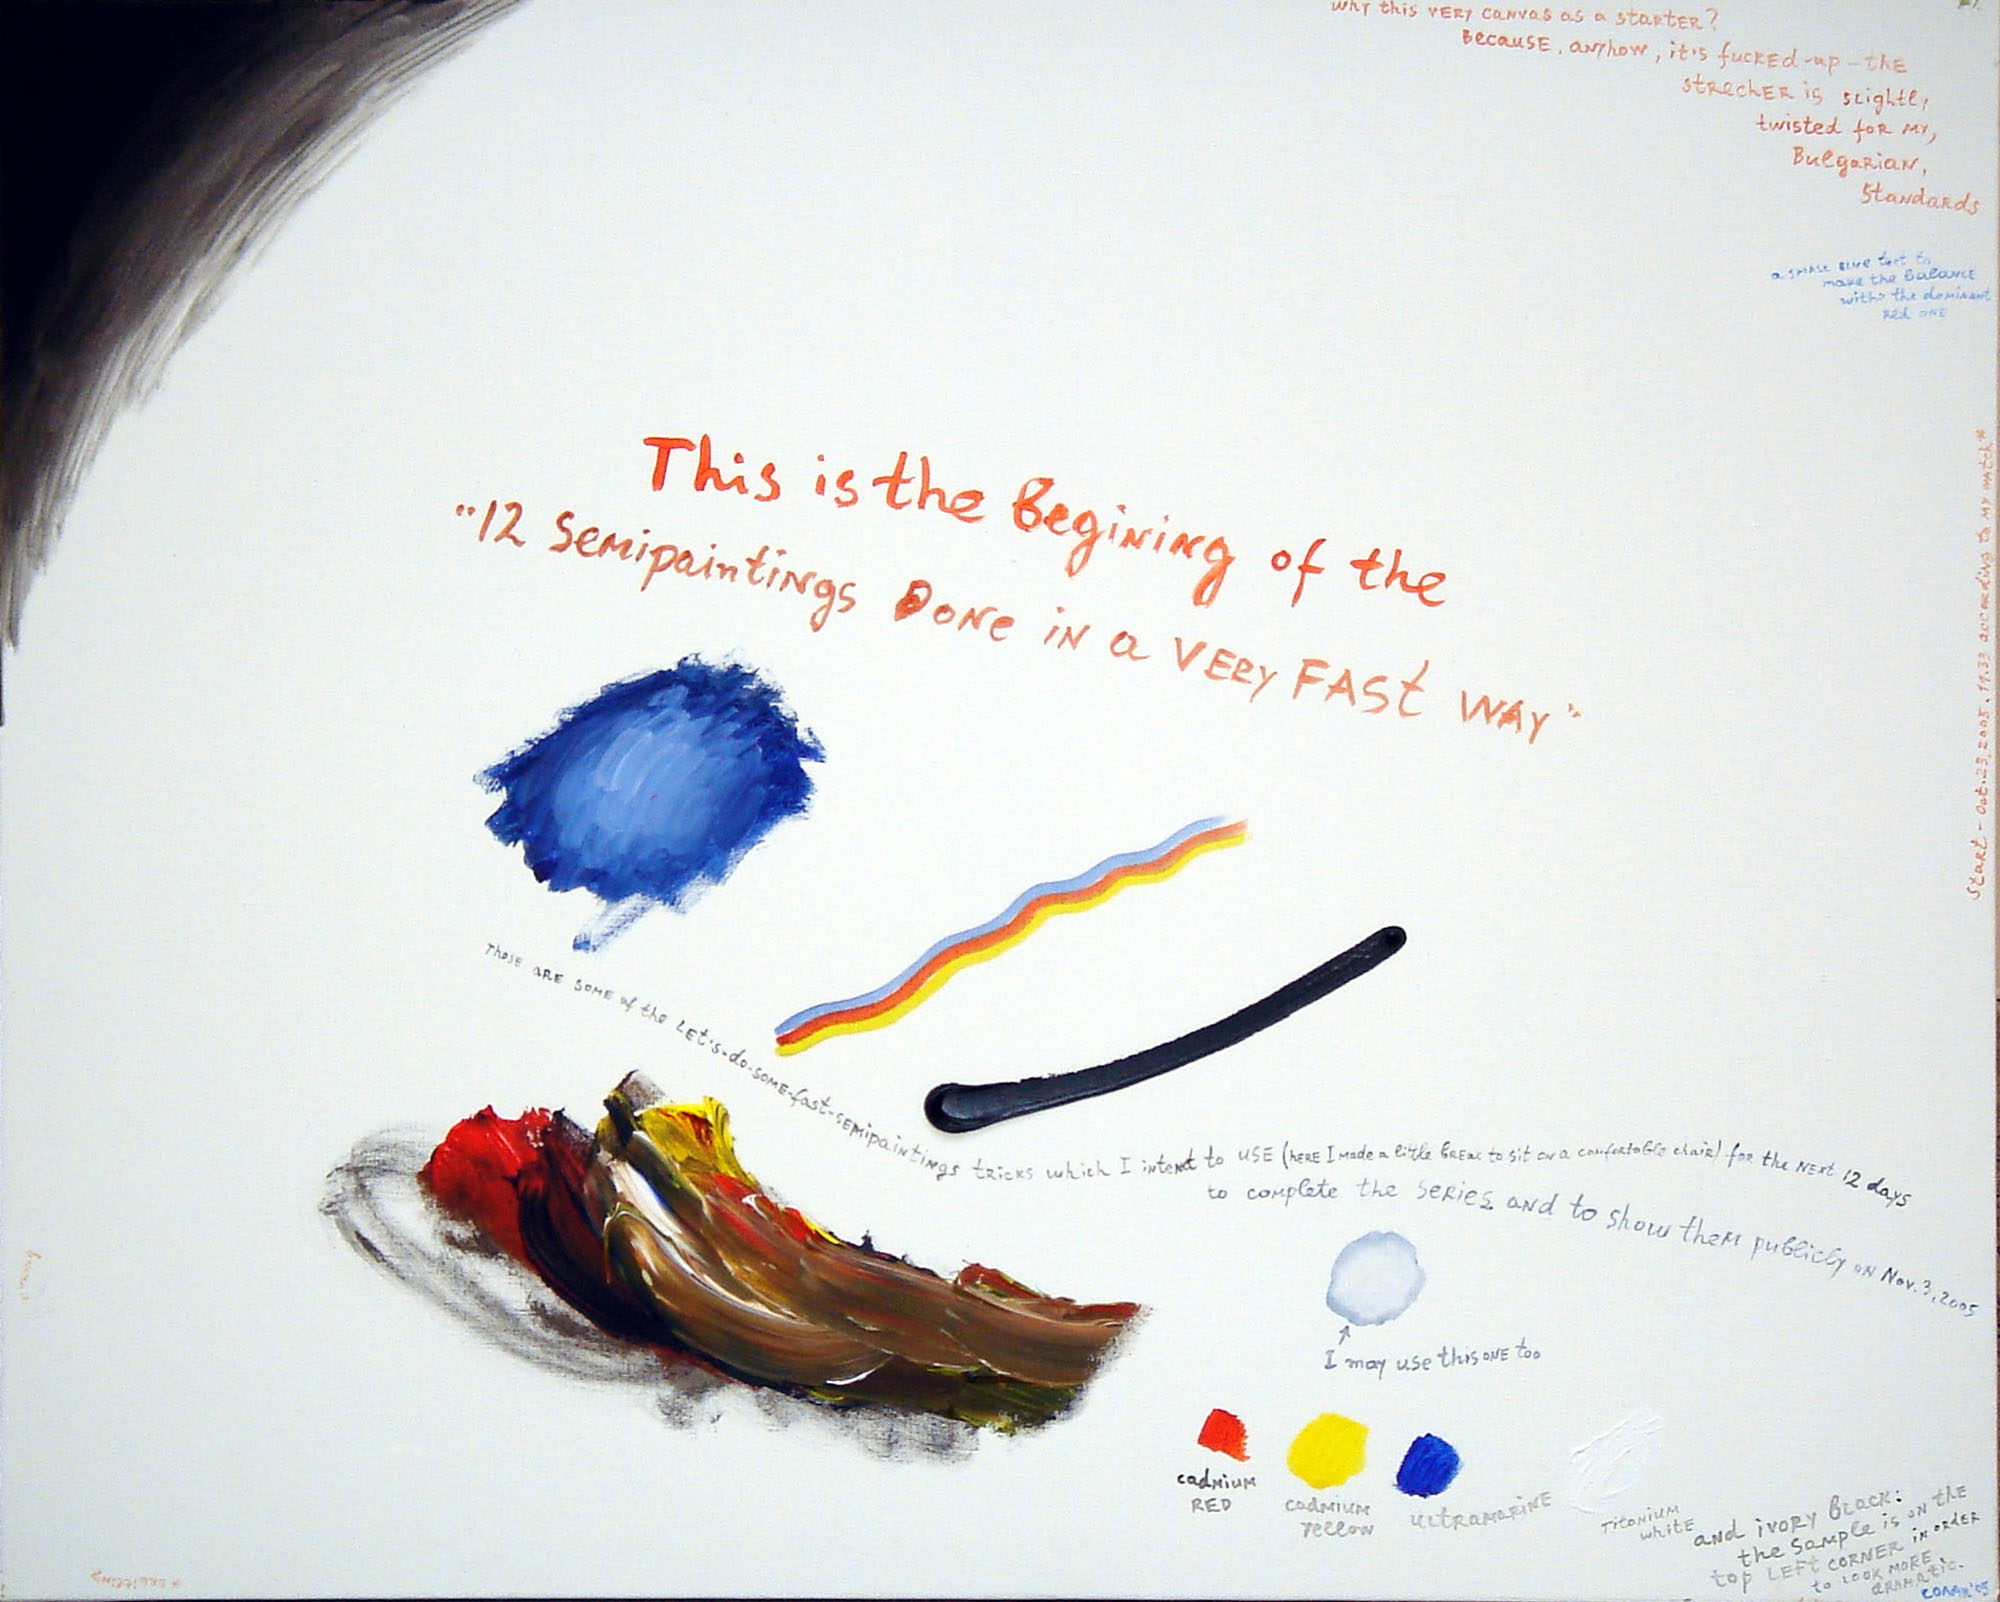 why this very canvas as a starter?
Because, anyhow, it's fucked-up - the
strecher is slightly
twisted for my,
Bulgarian,
standards
a small blue text to
make the balance
with the dominant
red one
This is the Begining of the
"12 Semipaintings Done in a Very Fast Way"
Start - Oct. 23, 2005. 11.33 according to my watch*
Those are some of the Let's-do-some-fast-semipaintings tricks which I intent to use (here I made a little break to sit on a comfortable chair) for the next 12 days
to complete the series and to show them publicly on Nov. 3, 2005
I may use this one too
cadmium
RED
cadmium
yellow
ultramarine
Titanium
white
and ivory black:
the sample is on the
top left corner in order
to look more
dramatic.